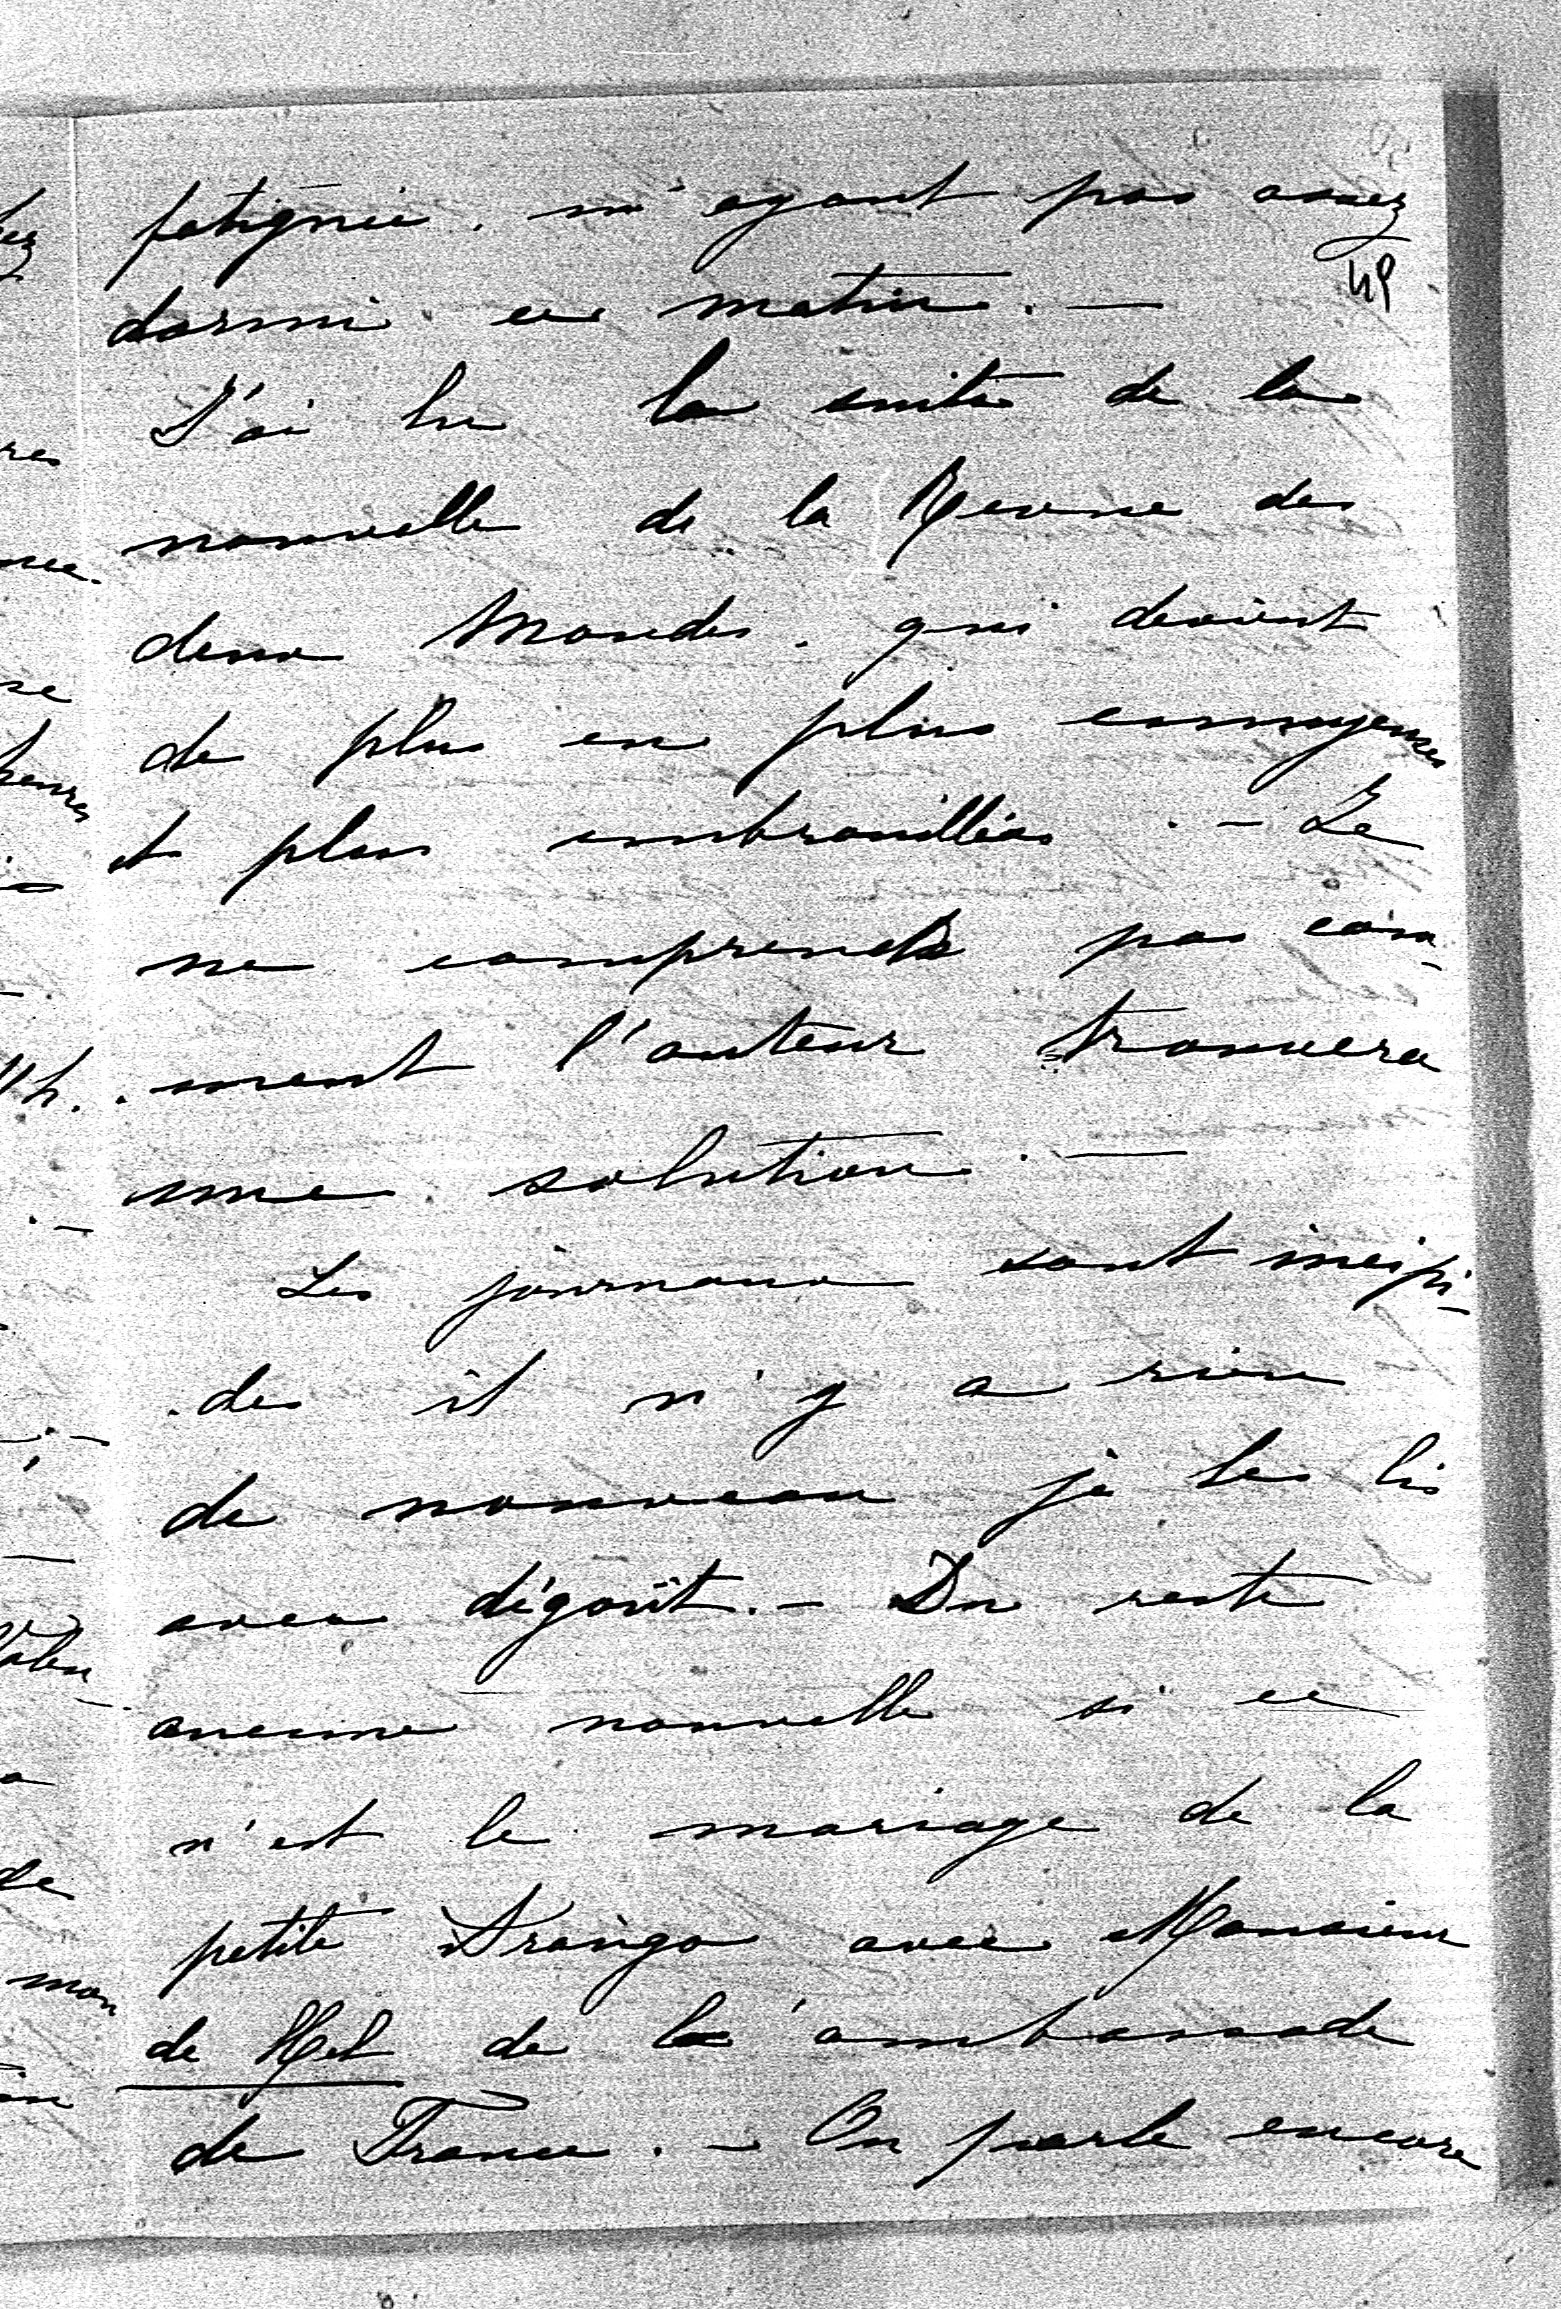 fatiguée. n'ayant pas assez
49
dormi ce matin. —
J'ai lu la suite de la
nouvelle de la Revue des
deux Mondes. qui devient
de plus en plus ennuyeuse
et plus embrouillée. — Je
ne comprends pas com-
ment l'auteur trouvera
une solution. —
Les journaux sont insipi-
des il n'y a rien
de nouveau je les lis
avec dégoût. — Du reste
aucune nouvelle si ce
n'est le mariage de la
petite avec Monsieur
de de l'ambassade
de France. — On parle encore